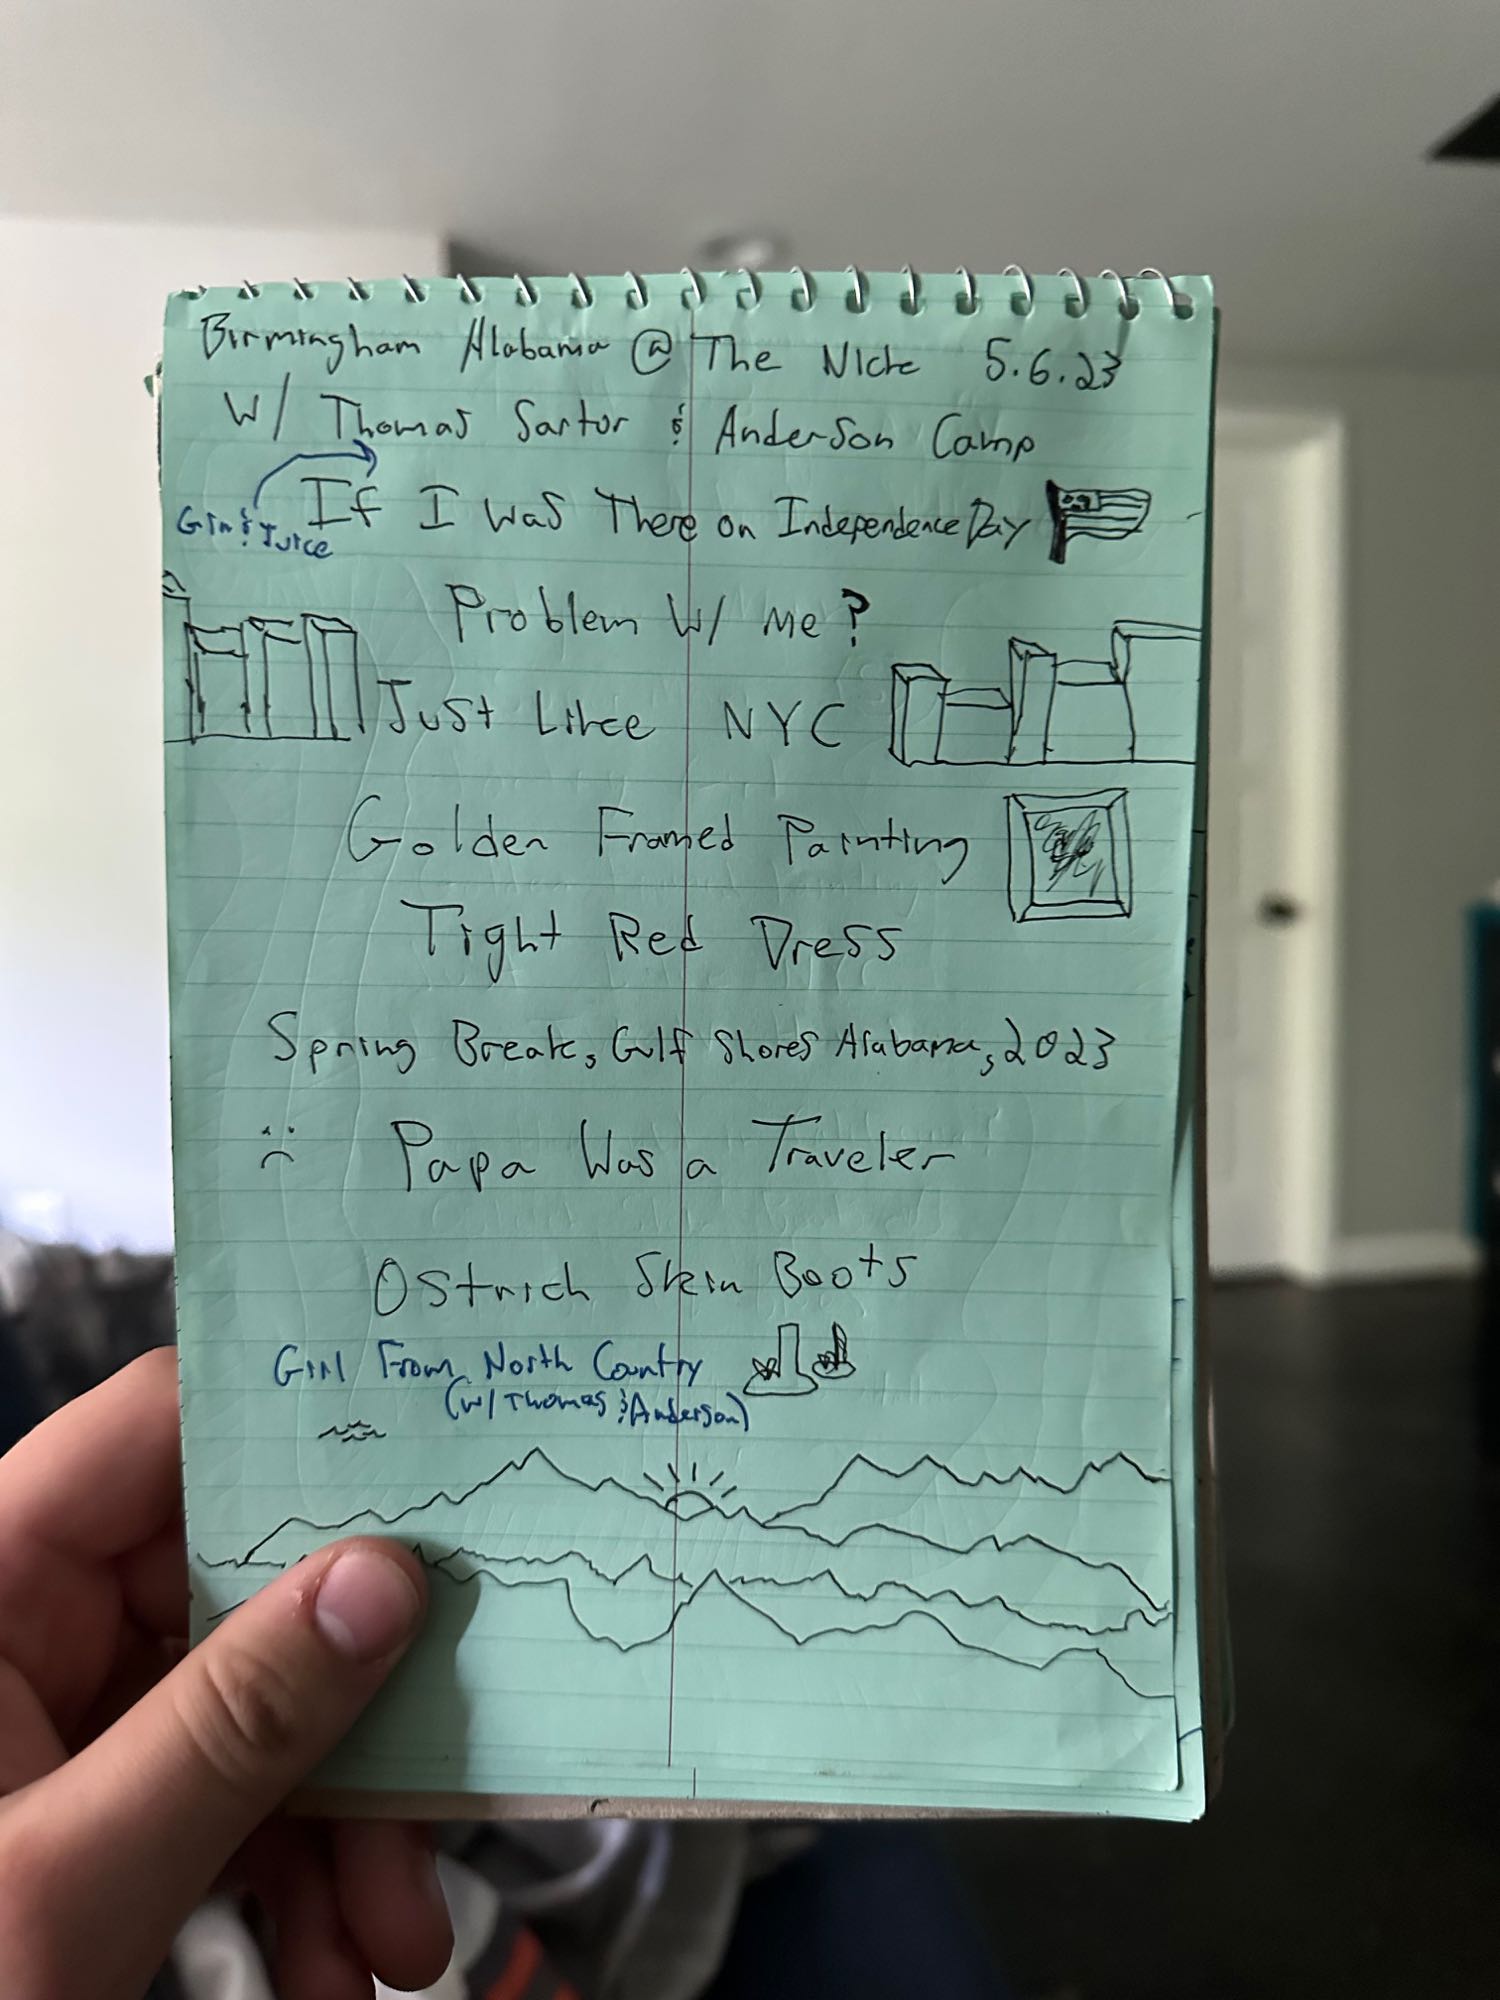 Birmingham Alabama @ The Nick 5.6.23
W/ Thomas Sartor & Anderson Camp
Gin & Juice
If I Was There on Independence Day
Problem W/ me?
Just Like NYC
Golden Framed Painting
Tight Red Dress
Spring Break, Gulf Shores Alabama, 2023
Papa Was a Traveler
Ostrich Skin Boots
Girl From North Country
(w/ Thomas & Anderson)